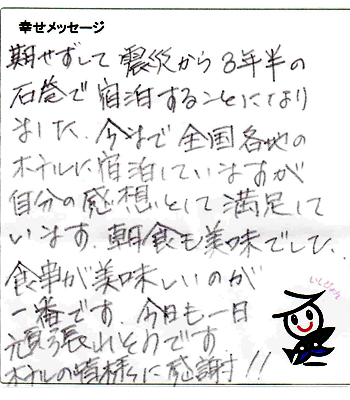 幸せメッセージ
期せずして震災から8年半の
石巻で宿泊することになり
ました、今まで全国各地の
ホテルに宿泊していますが
自分の感想として満足して
います、朝食も美味でした、
食事が美味しいのが
一番です、今日も一日
頑張れそうです
ホテルの皆様に感謝!!
いしぴょん